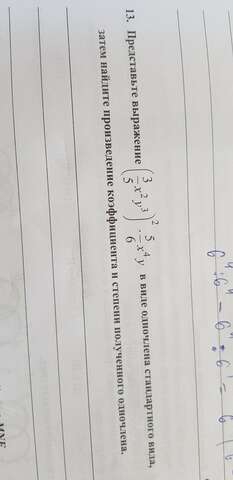 13. Представьте выражение (3/5 x²y³)² · 5/6 x⁴y в виде одночлена стандартного вида,
затем найдите произведение коэффициента и степени полученного одночлена.
MNF